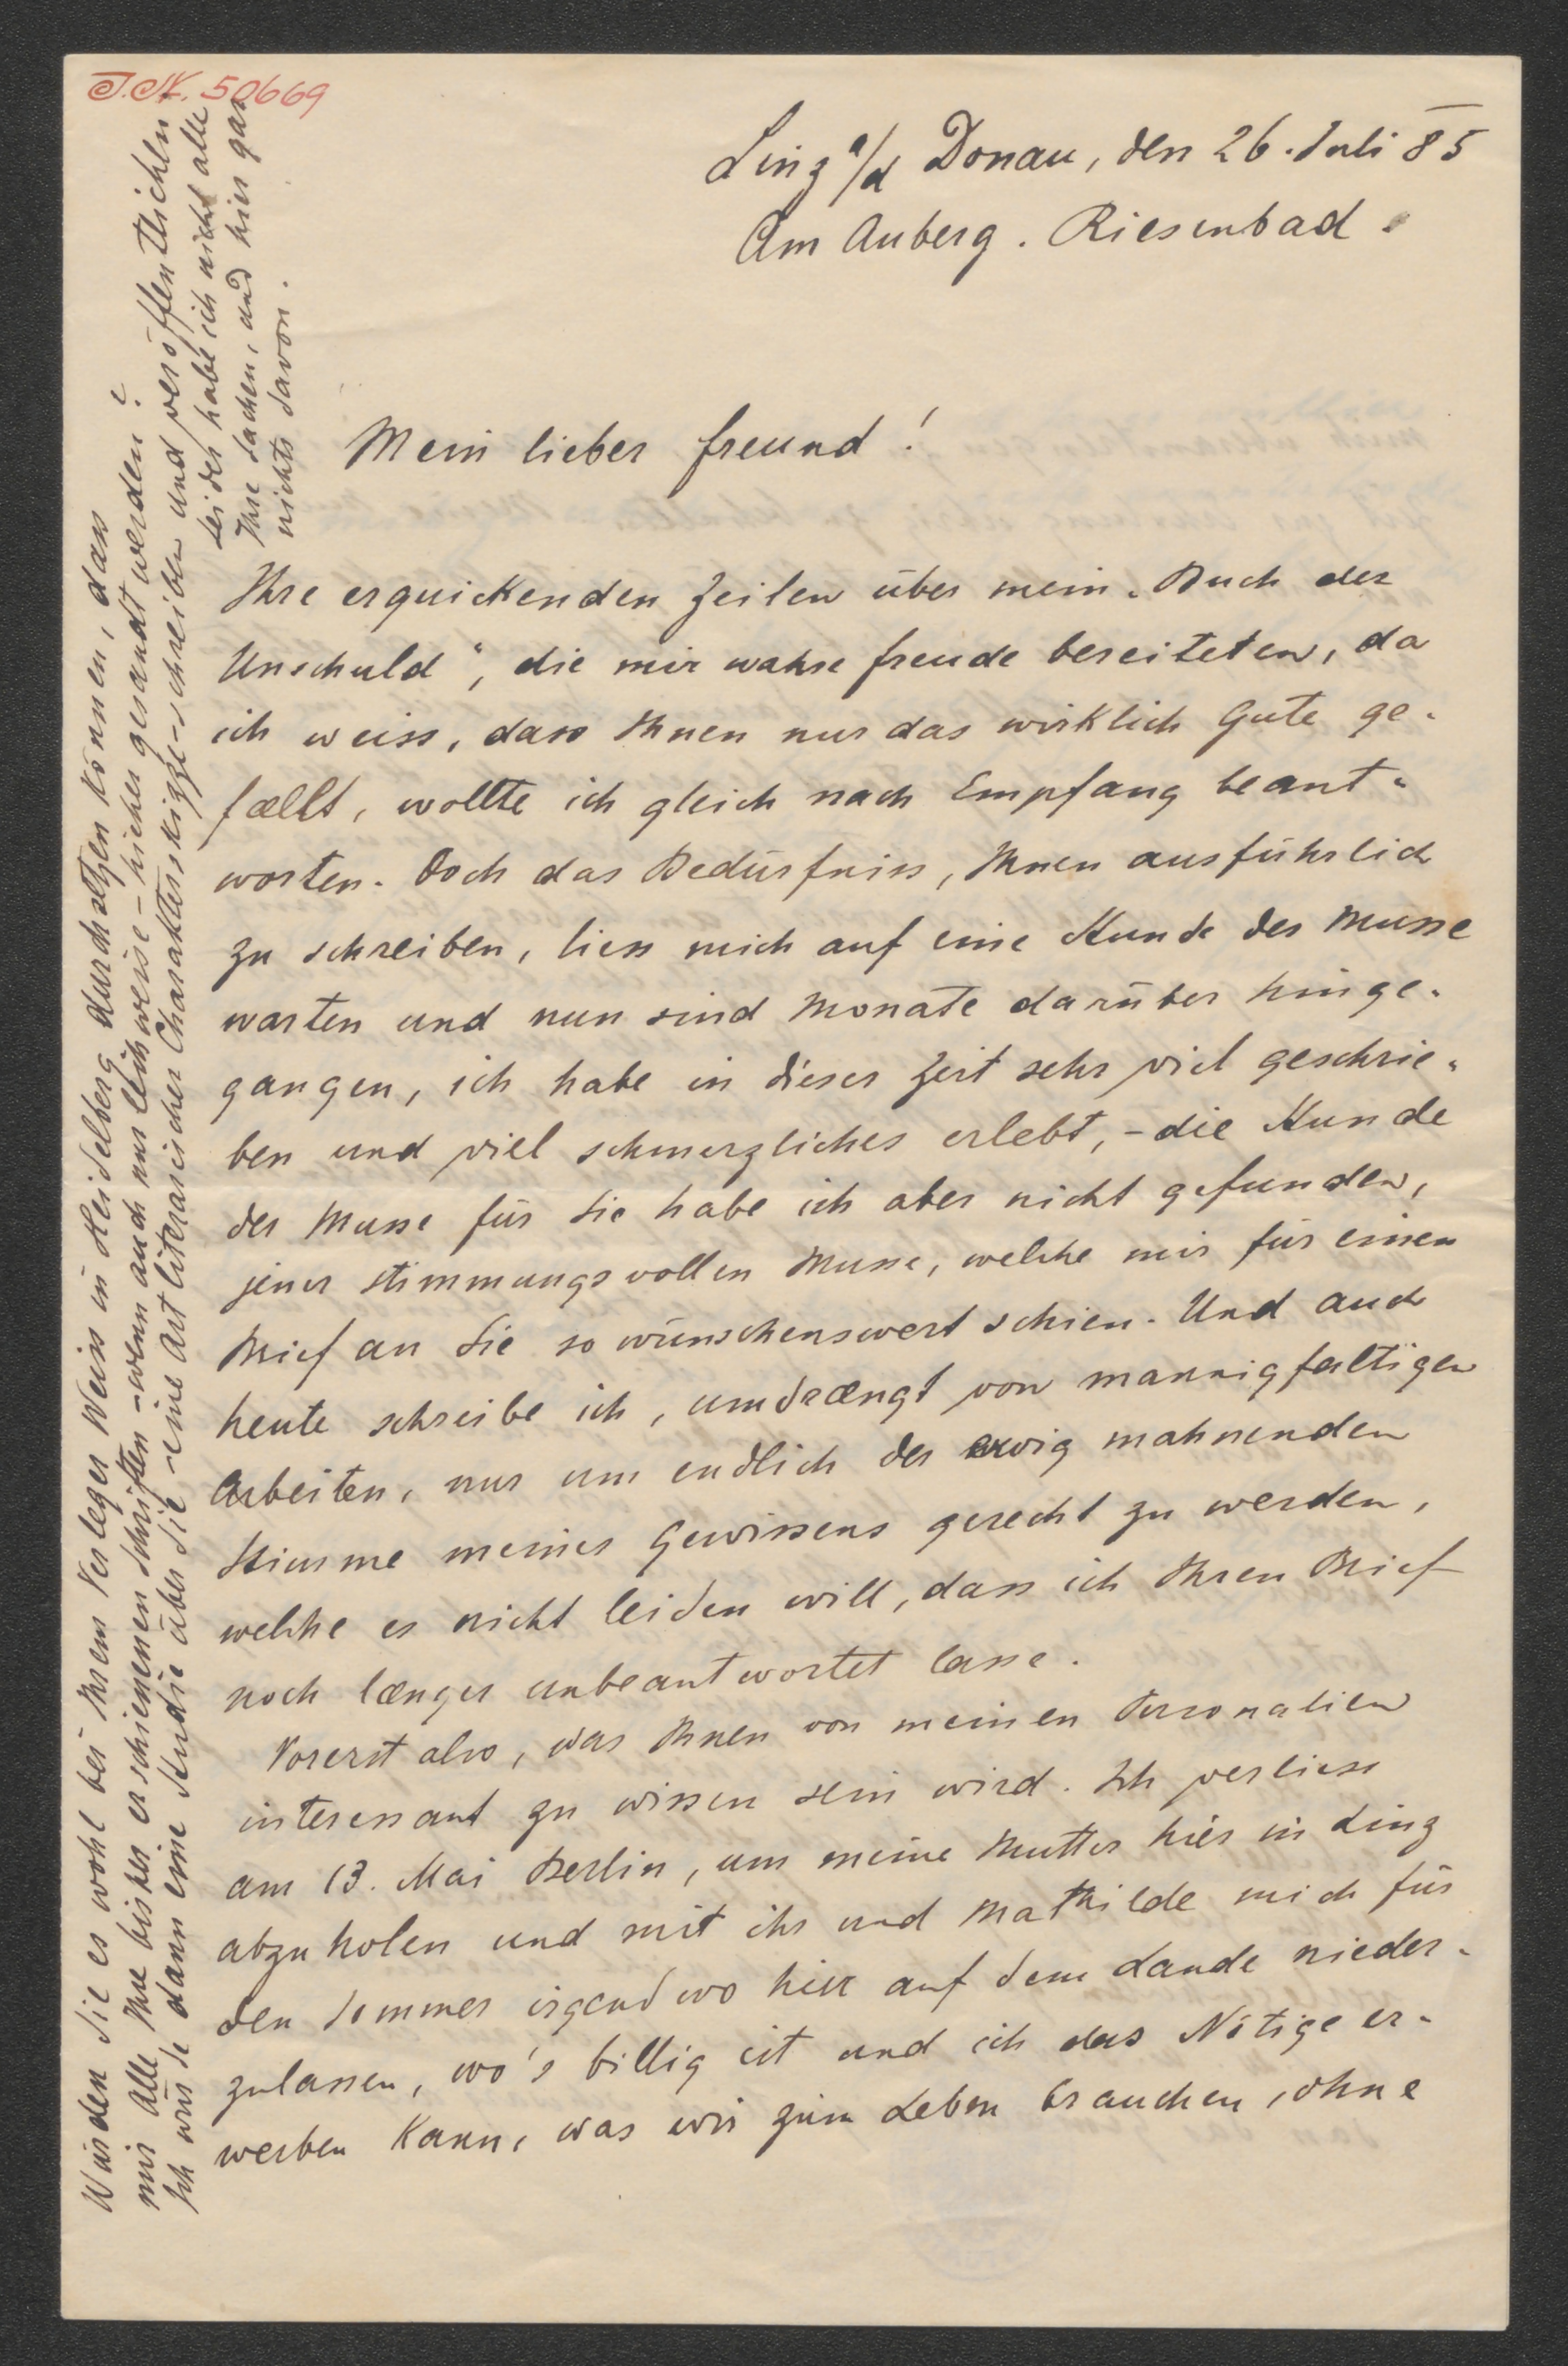 I.N. 50669
Linz a/d Donau, den 26. Juli 85
Am Auberg. Riesenbad.
Mein lieber Freund!
Ihre erquickenden Zeilen über mein „Buch der
Unschuld“, die mir wahre Freude bereiteten, da
ich weiss, dass Ihnen nur das wirklich Gute ge-
fællt, wollte ich gleich nach Empfang beant-
worten. Doch das Bedürfniss, Ihnen ausführlich
zu schreiben, liess mich auf eine Stunde der Musse
warten und nun sind Monate darüber hinge-
gangen, ich habe in dieser Zeit sehr viel geschrie-
ben und viel schmerzliches erlebt, – die Stunde
der Musse für Sie habe ich aber nicht gefunden,
jener stimmungsvollen Musse, welche mir für einen
Brief an Sie so wünschenswert schien. Und auch
heute schreibe ich, umdrængt von mannigfaltigen
Arbeiten, nur um endlich der ewig mahnenden
Stimme meines Gewissens gerecht zu werden,
welche es nicht leiden will, dass ich Ihren Brief
noch længer unbeantwortet lasse.
Vorerst also, was Ihnen von meinen Personalien
interessant zu wissen sein wird. Ich verliess
am 13. Mai Berlin, um meine Mutter hier in Linz
abzuholen und mit ihr und Mathilde mich für
den Sommer irgendwo hier auf dem Lande nieder-
zulassen, wo's billig ist und ich das Nötige er-
werben kann, was wir zum Leben brauchen, ohne
Würden Sie es wohl bei Ihrem Verleger Weiss in Heidelberg durchsetzen können, dass
mir alle Ihre bisher erschienenen Schriften – wenn auch nur leihweise – hieher gesandt werden?
Ich würde dann eine Studie über Sie – eine Art literarischer Charakterskizze – schreiben und veröffentlichen.
Leider habe ich nicht alle
Ihre Sachen, und hier gar
nichts davon.